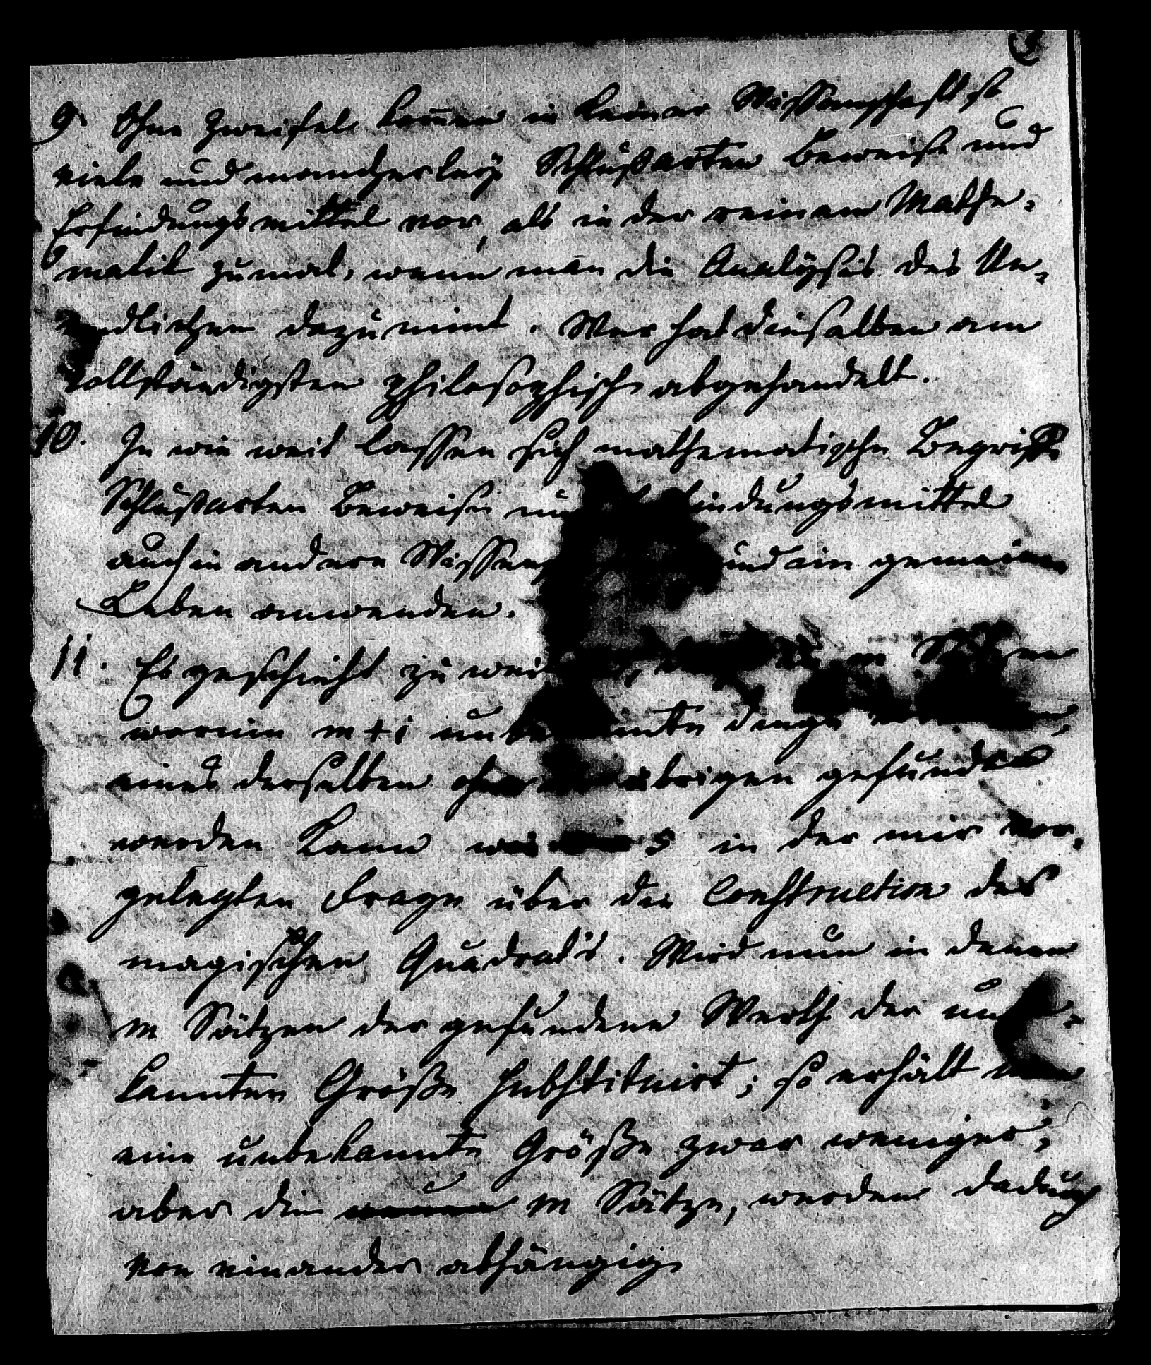 9. Ohne Zweifel komen in keiner Wissenschaft so
viele und mancherley Schlußarten Beweise und
Erfindungsmittel vor, als in der reinen Mathe-
matik zumal, wenn man die Analysis des Un-
endlichen dazu nimt. Wer hat dieselben am
vollständigsten philosophisch abgehandelt.
10. In wie weit lassen sich mathematische Begriffe
Schlußarten Beweise und Erfindungsmittel
auch in andere und im gemeinen
Leben anwenden.
11. Es geschieht zu weilen, in Sätzen
worin m+1 unbekannte Dinge
eines derselben ohne die übrigen gefunden
werden kann in der mir vor-
gelegten Frage über die Construction des
magischen Quadrats. Wird nun in denen
m Sätzen der gefundene Werth der unbe-
kannten Größe substituirt; so erhält man
eine unbekannte Größe zwar weniger,
aber die m Sätze, werden dadurch
von einander abhängig.